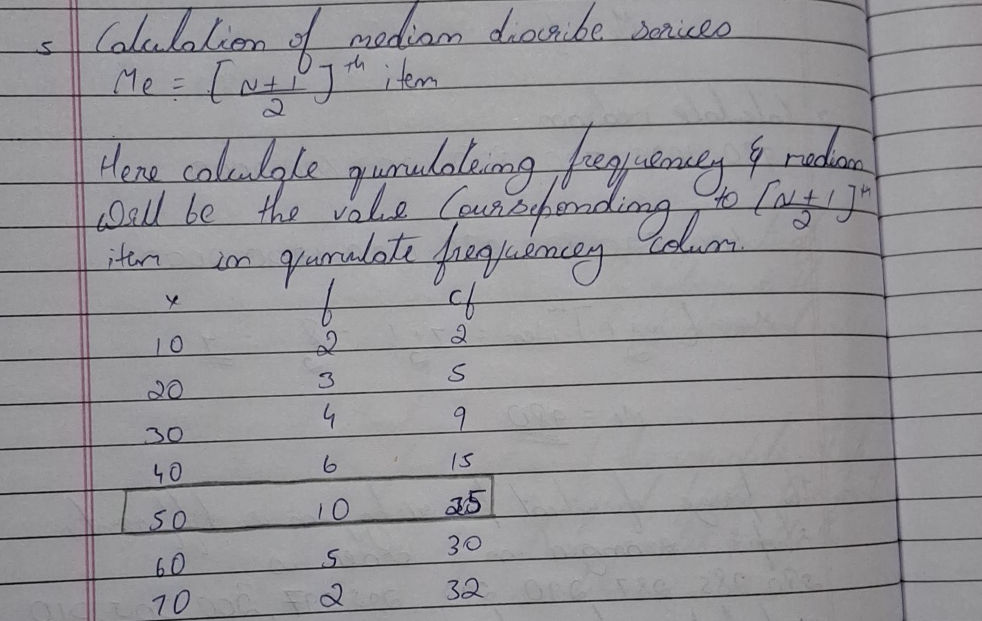 5 Calculation of median discribe serices
Me = [N+1/2]th item
Here calculate qumulateing frequencey & median
Will be the value Coursephonding to [N+1/2]th
item in qumulate frequencey Colum.
x f cf
10 2 2
20 3 5
30 4 9
40 6 15
50 10 25
60 5 30
70 2 32